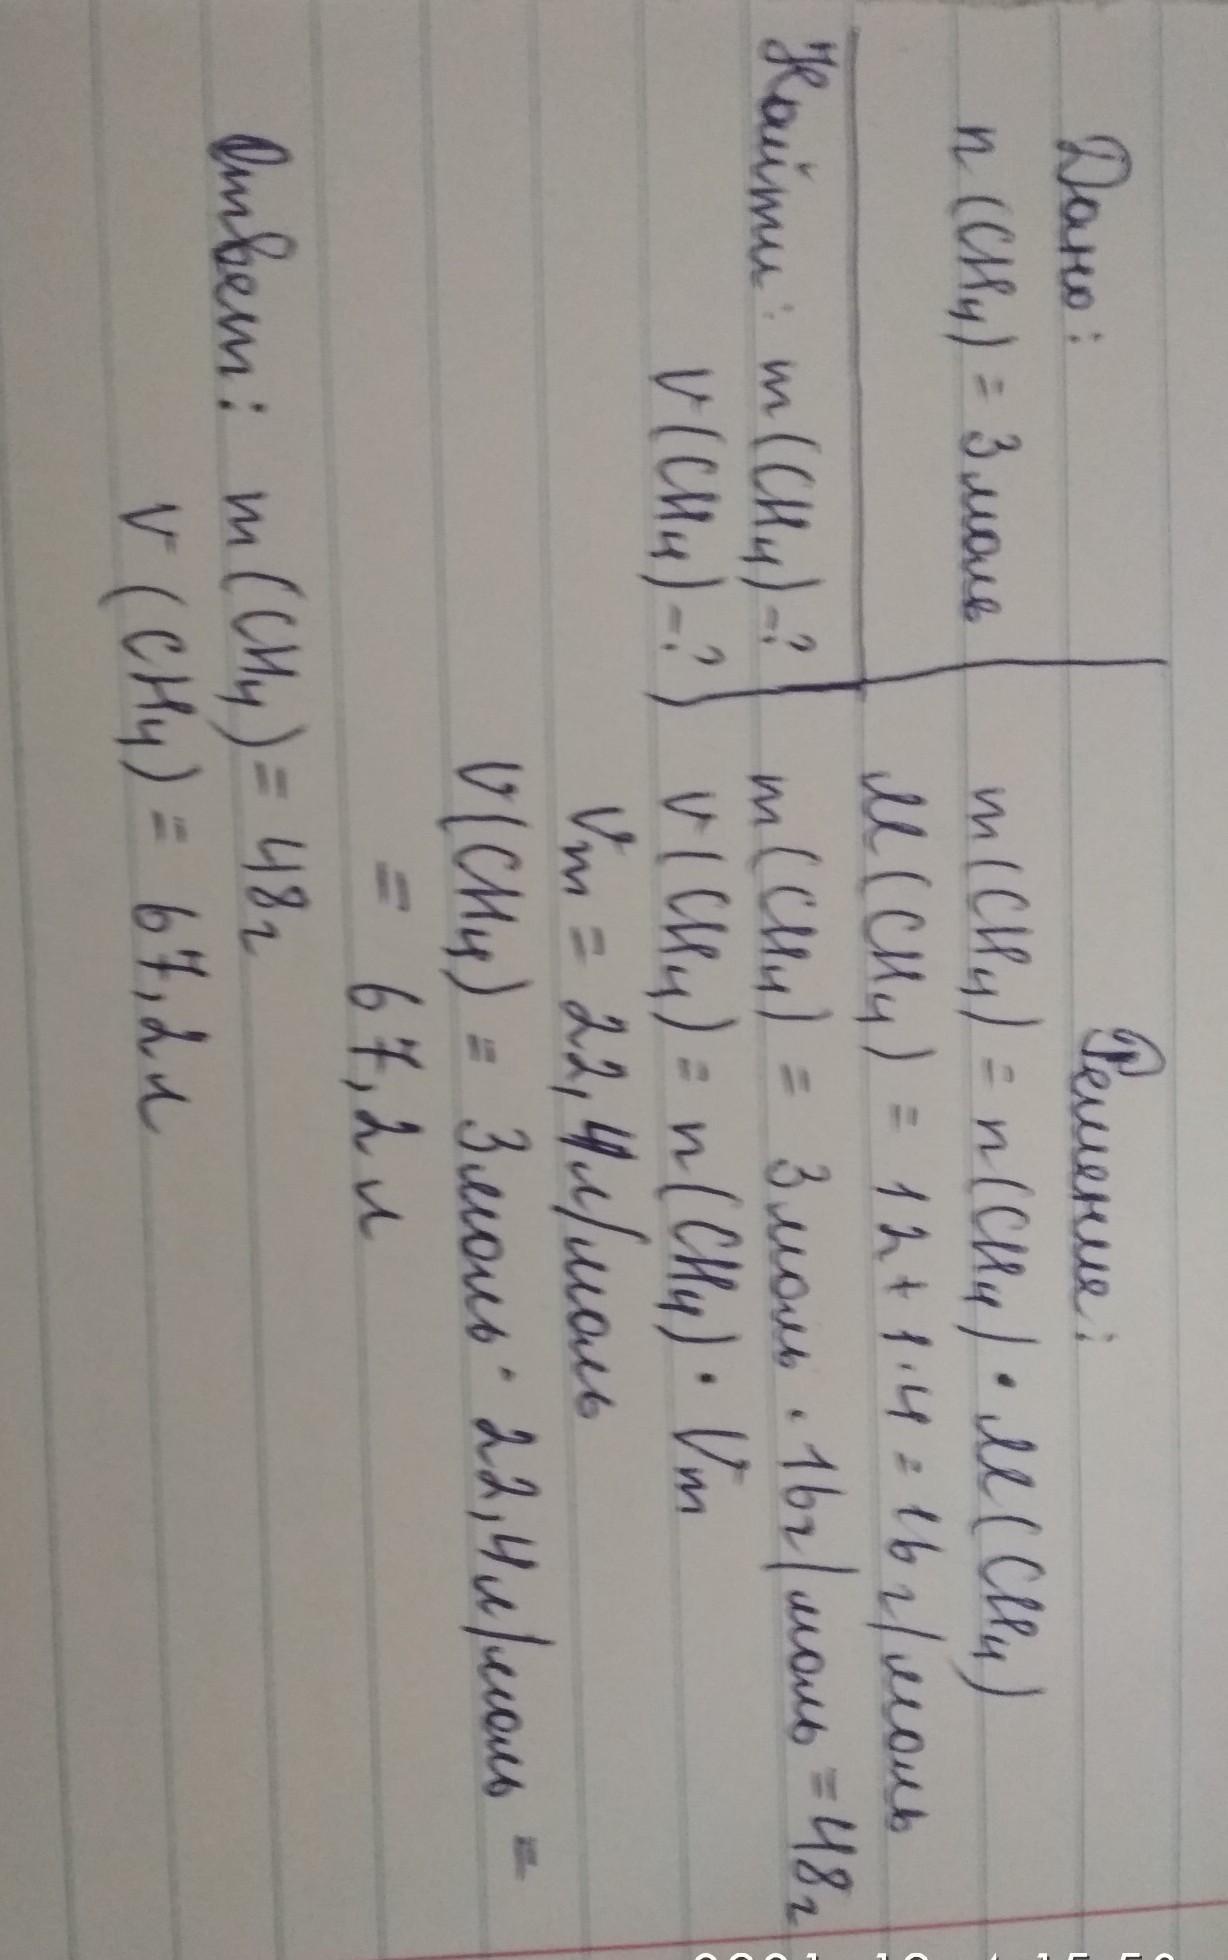 Дано:
n(CH4) = 3моль
Найти: m(CH4)-?
V(CH4)-?
Решение:
m(CH4) = n(CH4) · M(CH4)
M(CH4) = 12+1·4 = 16 г/моль
m(CH4) = 3моль · 16г/моль = 48г
V(CH4) = n(CH4) · Vm
Vm = 22,4л/моль
V(CH4) = 3моль · 22,4л/моль =
= 67,2 л
Ответ: m(CH4) = 48г
V(CH4) = 67,2л